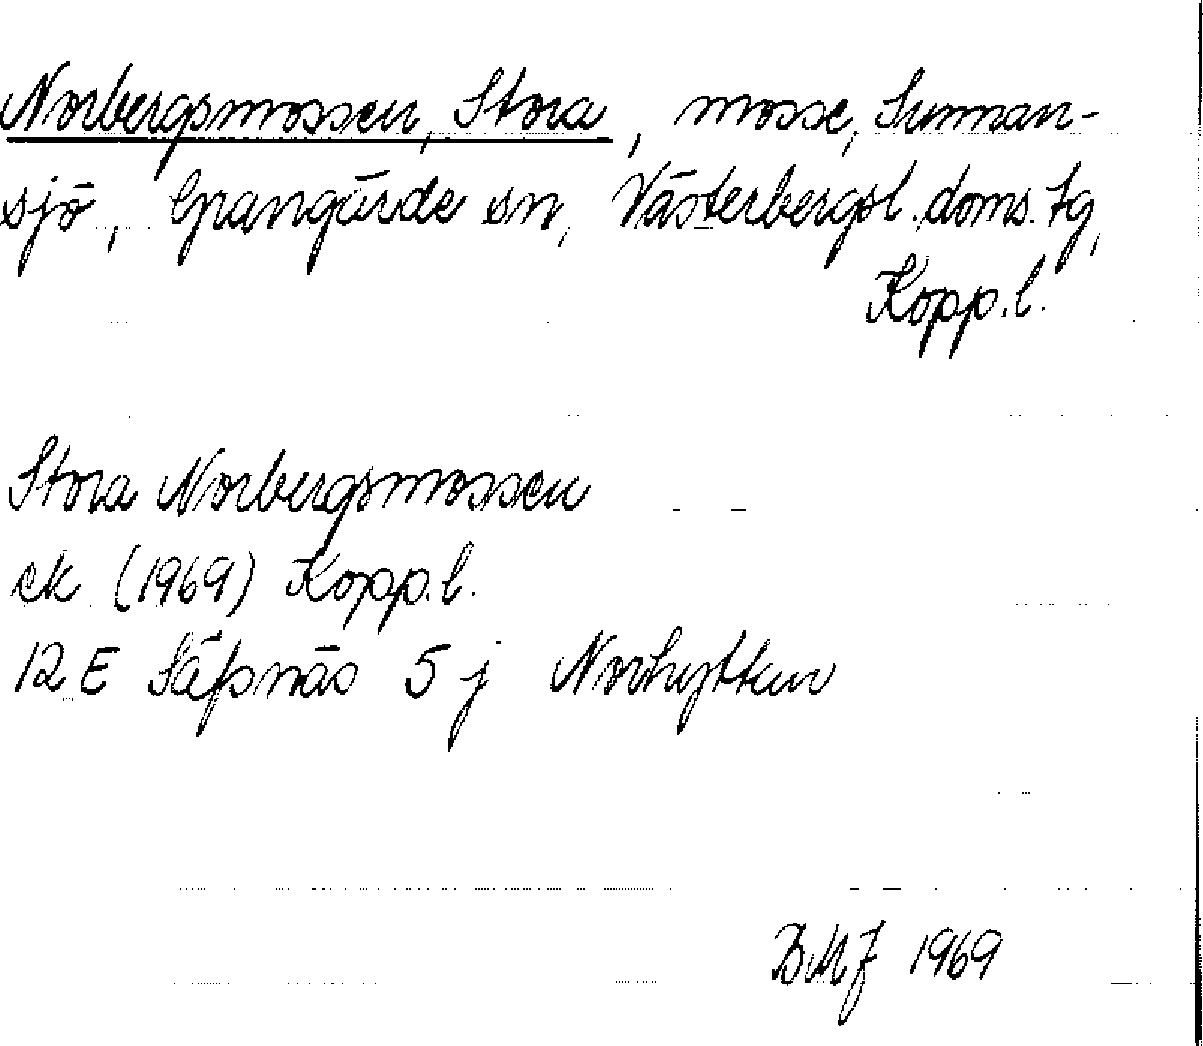 Norbergsmossen, Stora, mosse, Sunnan-
sjö, Grangärde sn, Västerbergsl. doms. tg,
Kopp.l.
Stora Norbergsmossen
ek (1969) Kopp.l.
12 E Säfsnäs 5 j Norhyttan
BMJ 1969